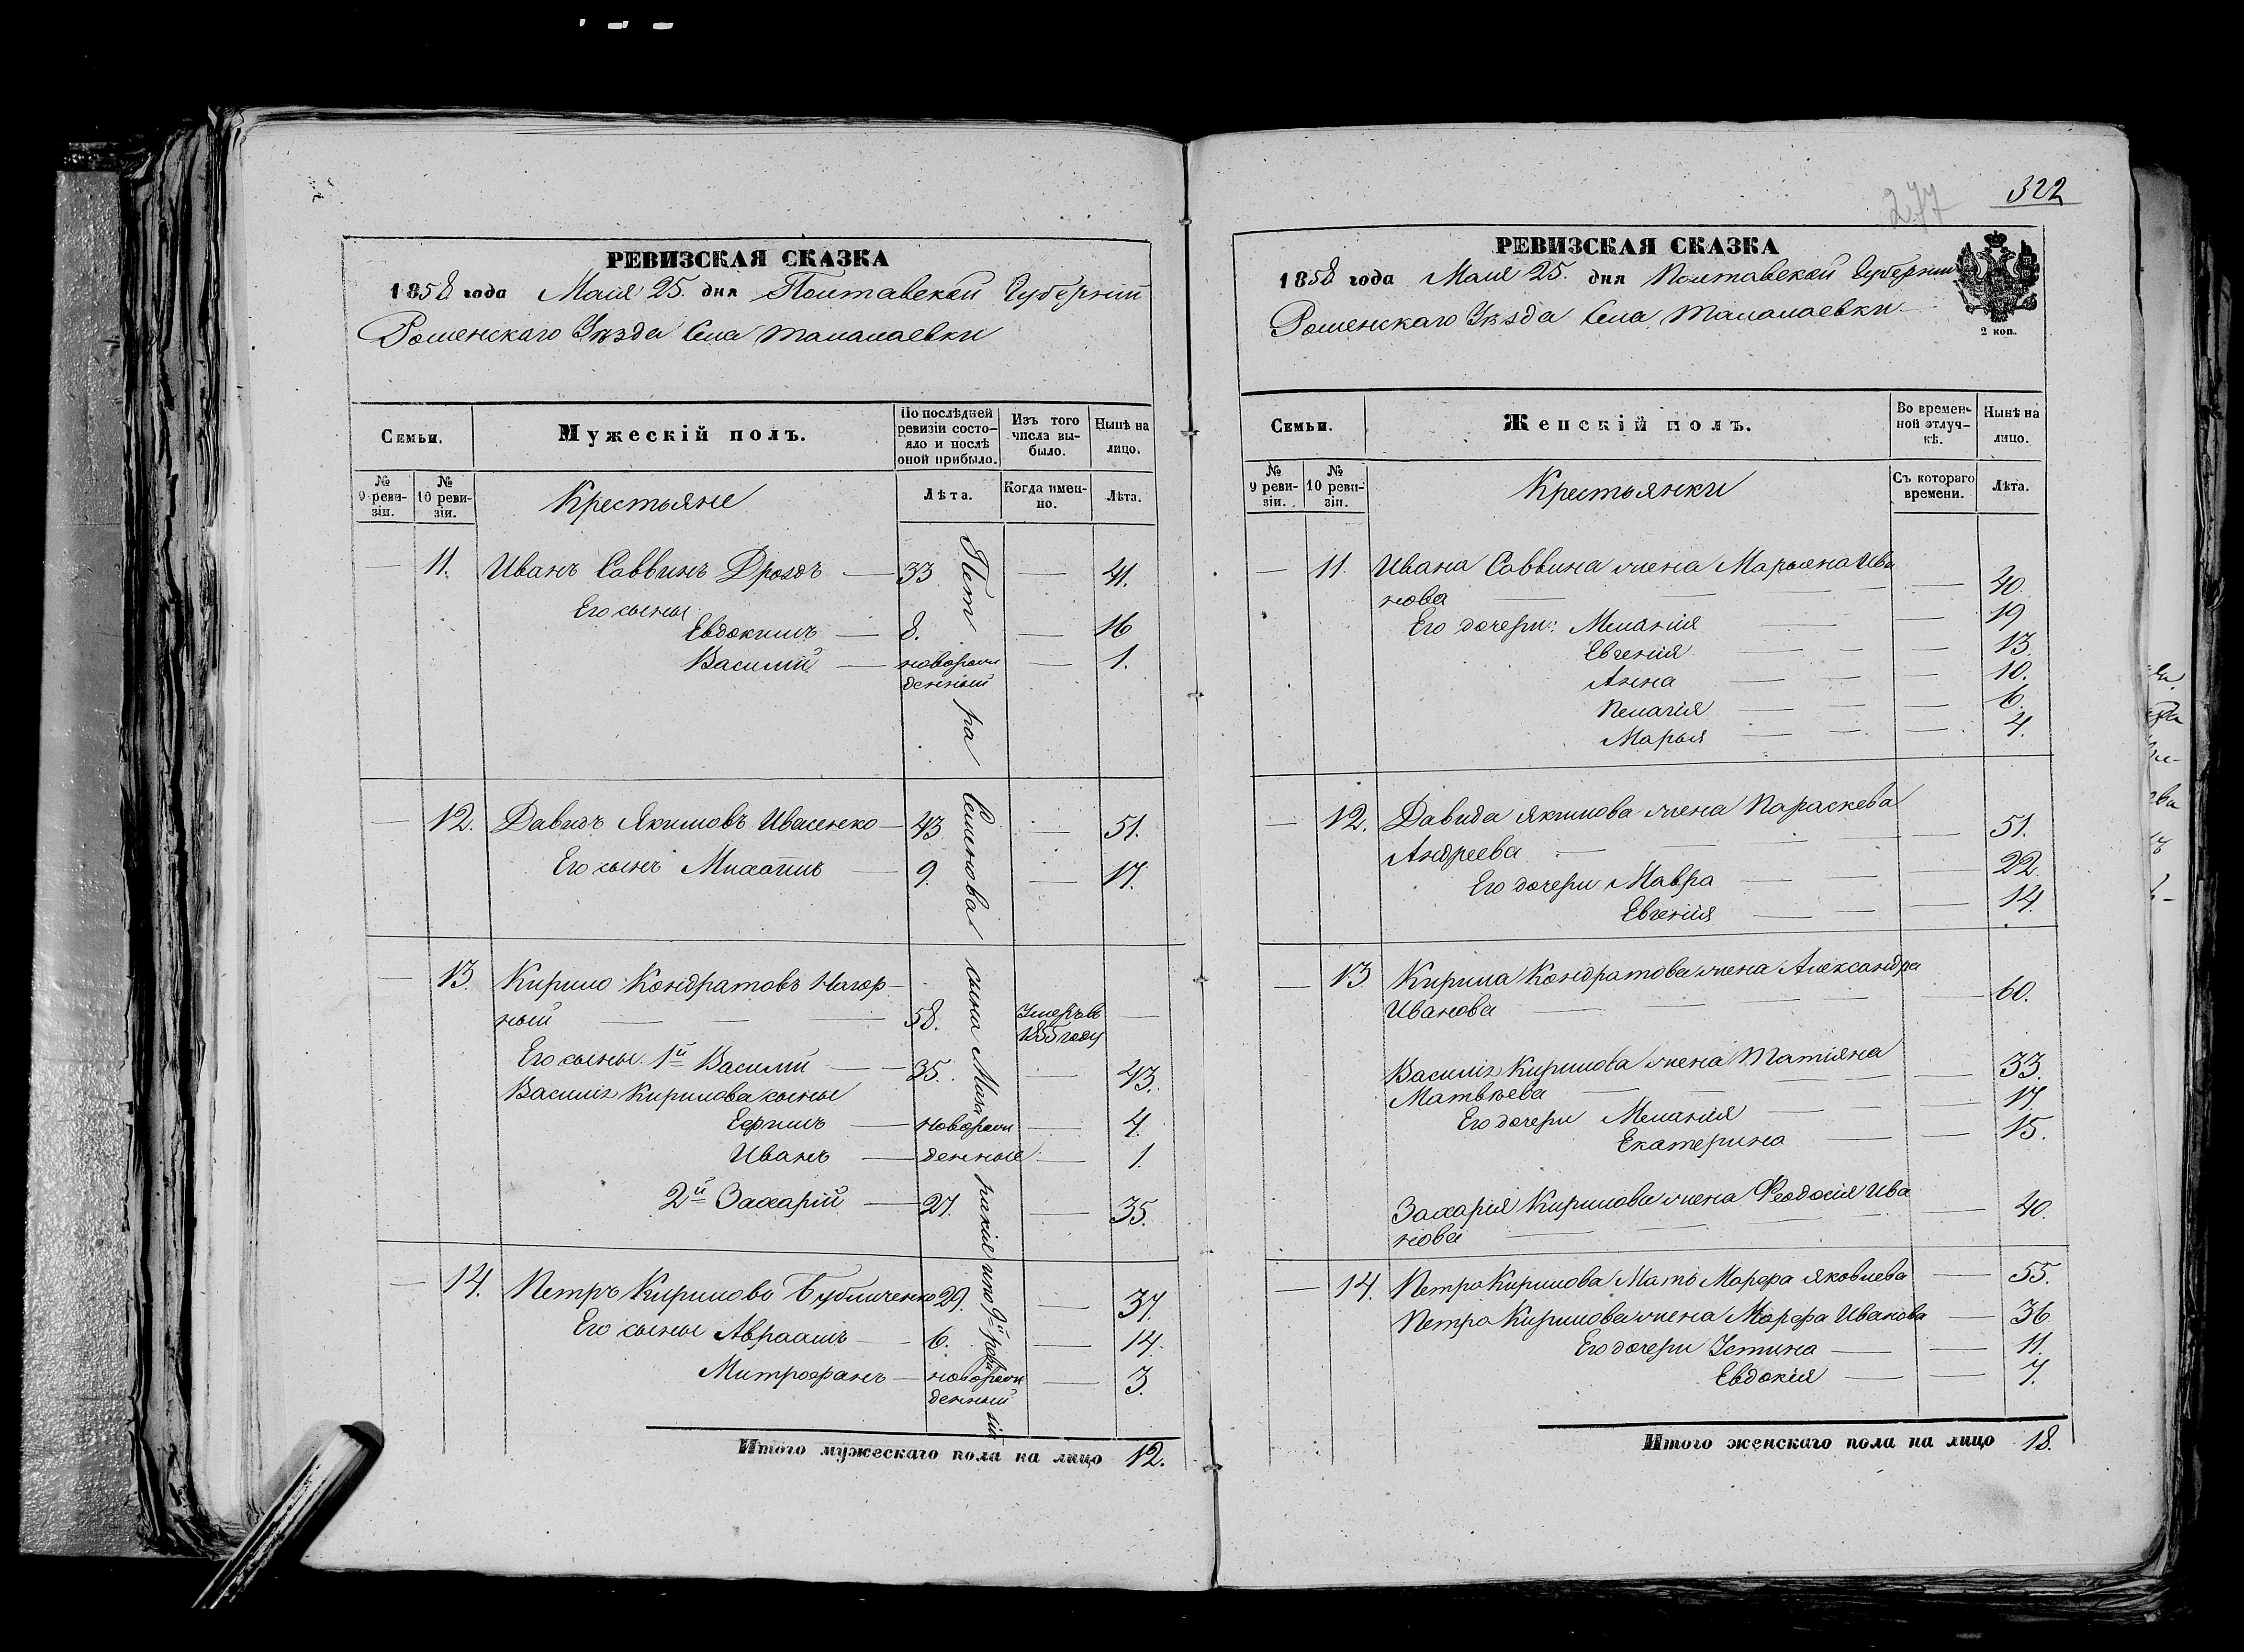 РЕВИЗСКАЯ СКАЗКА
1858 года Мая 25. дня Полтавской Губерніи
Роменскаго Уѣзда Села Талалаевки
Семьи.
Мужескій полъ.
По послѣдней ревизіи состояло и послѣ оной прибыло.
Изъ того числа выбыло.
Нынѣ на лицо.
№ 9 ревизіи.
№ 10 ревизіи.
Крестьяне
Лѣта.
Когда именно.
Лѣта.
— 11. Иванъ Саввинъ Дроздъ — 33 — 41.
Его сыны
Евдокимъ — 8. — 16
Василій — новорож — 1.
денный
— 12. Давидъ Якимовъ Ивасенко — 43 — 51.
Его сынъ Михаилъ — 9. — 17.
— 13. Кирило Кондратовъ Нагор-
ный — 58. Умеръ въ —
1855 году
Его сыны 1й Василій — 35. — 43.
Василія Кирилова сыны
Ефимъ — новорож — 4.
Иванъ — денные — 1.
2й Захарій — 27. — 35.
— 14. Петръ Кириловъ Бубличенко 29. — 37.
Его сыны Авраамъ — 6. — 14.
Митрофанъ — новорож — 3.
денный
Петра Семенова сына
по 9й ревизіи
Итого мужескаго пола на лицо 12.
322
277
РЕВИЗСКАЯ СКАЗКА
1858 года Мая 25. дня Полтавской Губерніи
Роменскаго Уѣзда Села Талалаевки
2 коп.
Семьи.
Женскій полъ.
Во временной отлучкѣ.
Нынѣ на лицо.
№ 9 ревизіи.
№ 10 ревизіи.
Крестьянки
Съ котораго времени.
Лѣта.
— 11. Ивана Саввина жена Марьяна Ива
нова — 40.
Его дочери: Меланія — 19
Евгенія — 13.
Анна — 10.
Пелагія — 6.
Марья — 4.
— 12. Давида Якимова жена Параскева
Андреева — 51.
Его дочери Мавра — 22.
Евгенія — 14.
— 13 Кирила Кондратова жена Александра
Иванова — 60.
Василія Кирилова жена Татіяна
Матвѣева — 33.
Его дочери Меланія — 17
Екатерина — 15.
Захарія Кирилова жена Феодосія Ива
нова — 40.
— 14. Петра Кирилова Мать Марфа Яковлева — 55.
Петра Кирилова жена Марфа Иванова — 36
Его дочери Устина — 11.
Евдокія — 7.
Итого женскаго пола на лицо 18.